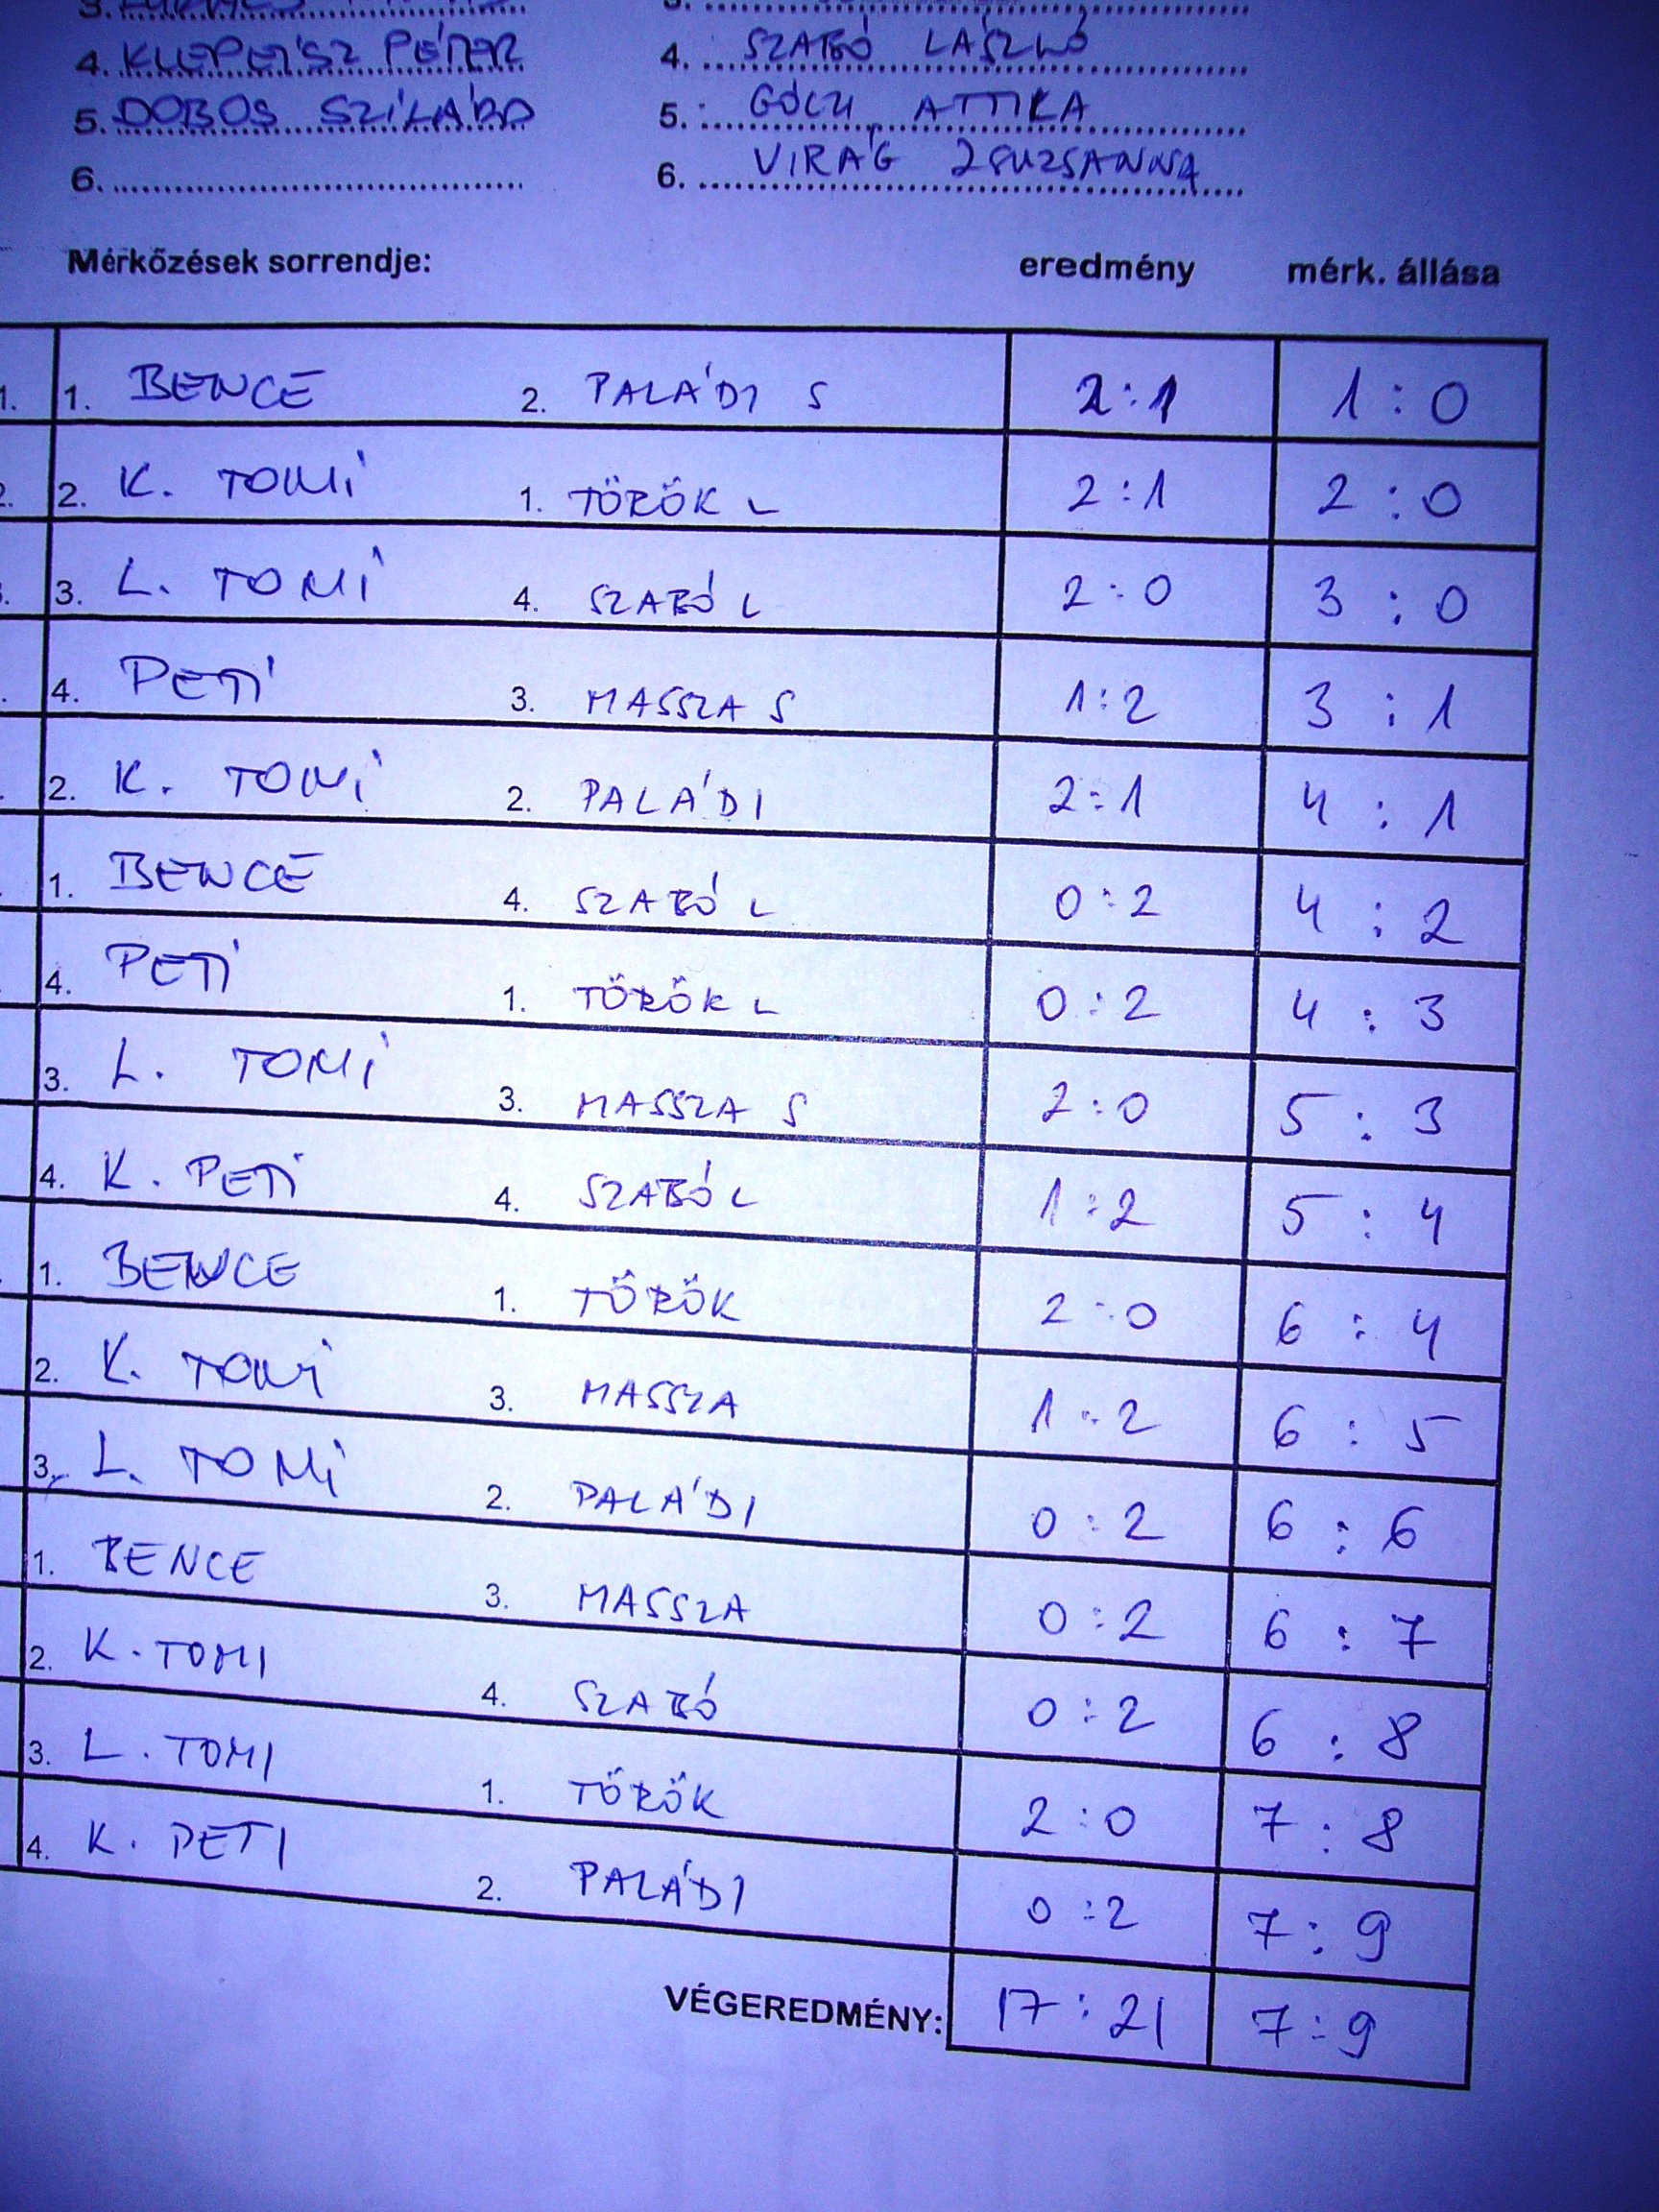 4. KLEPEISZ PÉTER 4. SZABÓ LÁSZLÓ
5. DOBOS SZILÁRD 5. GÓCZI ATTILA
6. 6. VIRÁG ZSUZSANNA
Mérkőzések sorrendje: eredmény mérk. állása
1. 1. BENCE 2. PALÁDI S 2:1 1:0
2. 2. K. TOMI 1. TÖRÖK L 2:1 2:0
3. 3. L. TOMI 4. SZABÓ L 2:0 3:0
4. PETI 3. MASSZA S 1:2 3:1
2. K. TOMI 2. PALÁDI 2:1 4:1
1. BENCE 4. SZABÓ L 0:2 4:2
4. PETI 1. TÖRÖK L 0:2 4:3
3. L. TOMI 3. MASSZA S 2:0 5:3
4. K. PETI 4. SZABÓ L 1:2 5:4
1. BENCE 1. TÖRÖK 2:0 6:4
2. K. TOMI 3. MASSZA 1:2 6:5
3. L. TOMI 2. PALÁDI 0:2 6:6
1. BENCE 3. MASSZA 0:2 6:7
2. K. TOMI 4. SZABÓ 0:2 6:8
3. L. TOMI 1. TÖRÖK 2:0 7:8
4. K. PETI 2. PALÁDI 0:2 7:9
VÉGEREDMÉNY: 17:21 7:9